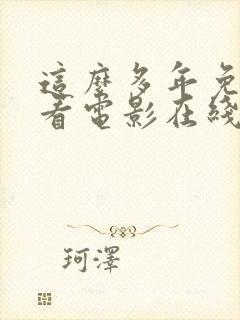 這麼多年免
看電影在綫
珂澤